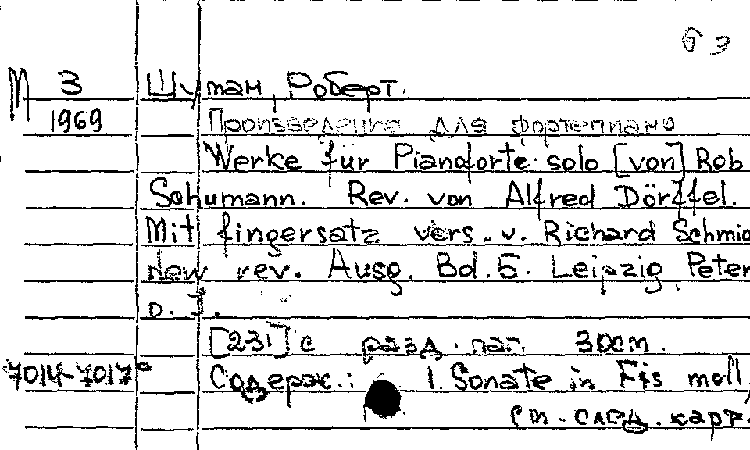 М З Шуман, Роберт.
1969 Произведения для фортепиано
Werke für Pianoforte solo [von] Rob
Schumann. Rev. von Alfred Dörffel.
Mit fingersatz vers. v. Richard Schmid
New rev. Ausg. Bd. 5. Leipzig, Peter
o. J.
[231] с разд. паг. 30см.
7014-7017 Содерж.: 1. Sonate in Fis moll,
см. след. карт.